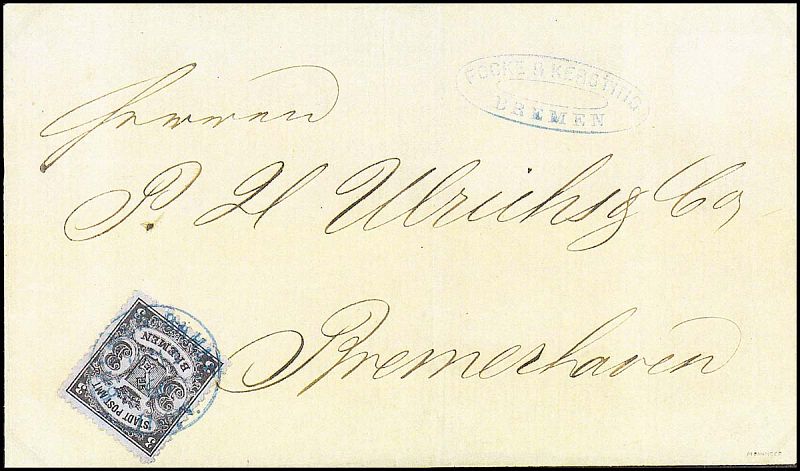 FOCKE & KERSTING
BREMEN
Herren
P. H Ulrichs & Co,
Bremerhaven
BREMEN
3 3
STADT POST AMT